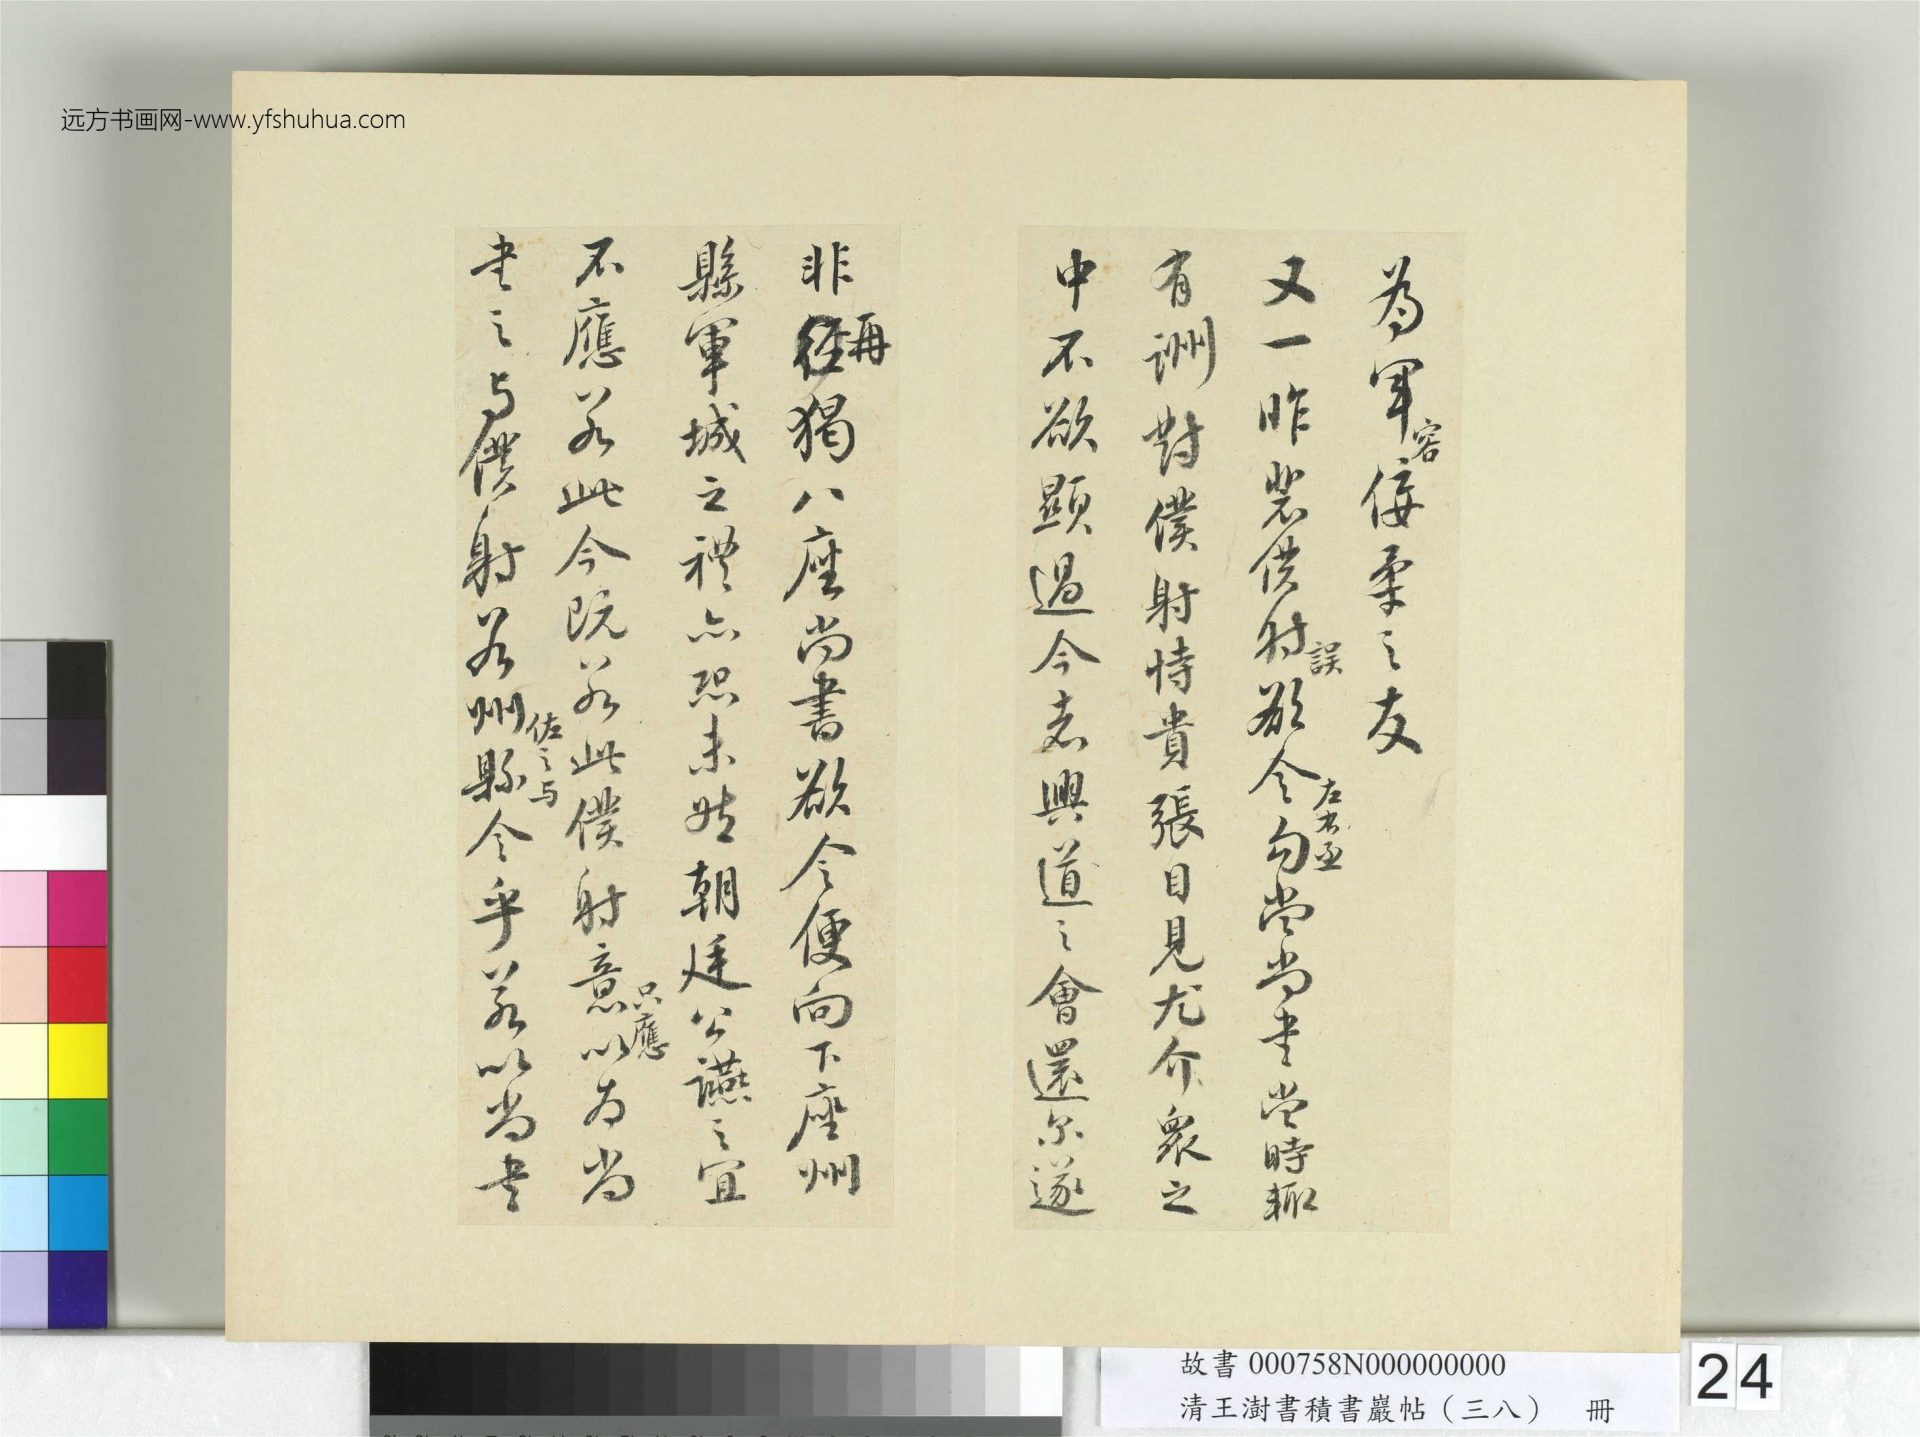 远方书画网-www.yfshuhua.com
為軍容佞柔之友
又一昨裴僕射誤欲令左右丞勾當尚書當時輙
有詶對僕射恃貴張目見尤介衆之
中不欲顯過今者興道之會還尔遂
非再猲八座尚書欲令便向下座州
縣軍城之禮亦恐未然朝廷公讌之宜
不應若此今既若此僕射意只應以為尚
書之与僕射若州佐之与縣令乎若以尚書
故書 000758N000000000
清王澍書積書巖帖（三八） 冊
24